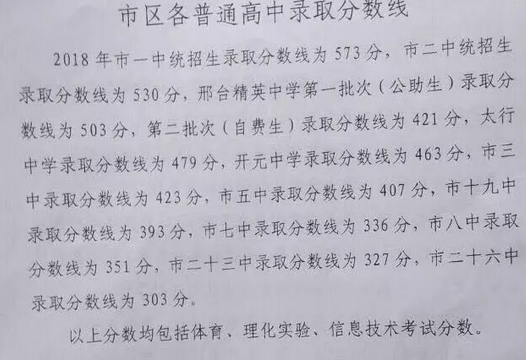 市区各普通高中录取分数线
2018 年市一中统招生录取分数线为 573 分，市二中统招生
录取分数线为 530 分，邢台精英中学第一批次（公助生）录取分
数线为 503 分，第二批次（自费生）录取分数线为 421 分，太行
中学录取分数线为 479 分，开元中学录取分数线为 463 分，市三
中录取分数线为 423 分，市五中录取分数线为 407 分，市十九中
录取分数线为 393 分，市七中录取分数线为 336 分，市八中录取
分数线为 351 分，市二十三中录取分数线为 327 分，市二十六中
录取分数线为 303 分。
以上分数均包括体育、理化实验、信息技术考试分数。